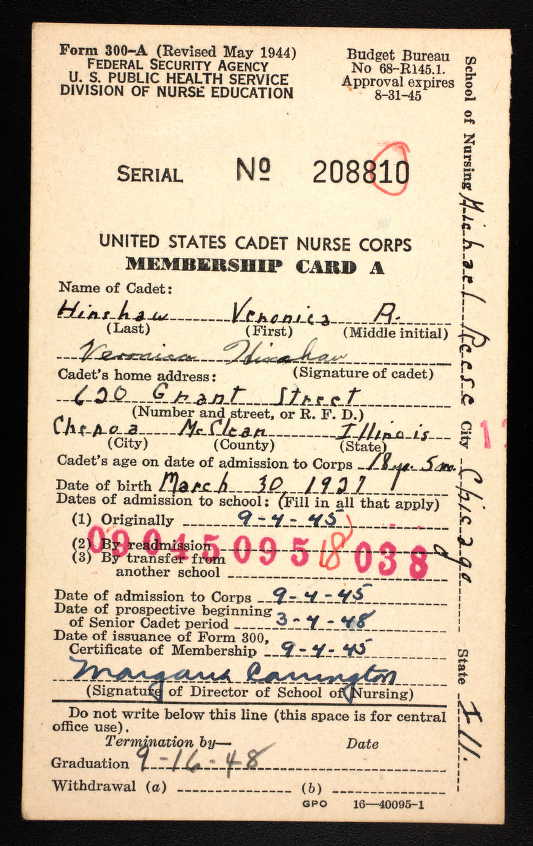 Form 300-A (Revised May 1944)
FEDERAL SECURITY AGENCY
U. S. PUBLIC HEALTH SERVICE
DIVISION OF NURSE EDUCATION
Budget Bureau
No 68-R145.1.
Approval expires
8-31-45
SERIAL № 208810
UNITED STATES CADET NURSE CORPS
MEMBERSHIP CARD A
Name of Cadet:
Hinshaw Veronica A.
(Last) (First) (Middle initial)
Veronica Hinshaw
Cadet's home address: (Signature of cadet)
620 Grant Street
(Number and street, or R. F. D.)
Chenoa McClean Illinois
(City) (County) (State)
Cadet's age on date of admission to Corps 18 yr. 5 mo.
Date of birth March 30 1927
Dates of admission to school: (Fill in all that apply)
(1) Originally 9-4-45
(2) By readmission
(3) By transfer from
another school
09045095 18 038
Date of admission to Corps 9-4-45
Date of prospective beginning
of Senior Cadet period 3-4-48
Date of issuance of Form 300,
Certificate of Membership 9-4-45
Margaret Carrington
(Signature of Director of School of Nursing)
Do not write below this line (this space is for central
office use).
Termination by— Date
Graduation 9-16-48
Withdrawal (a) (b)
GPO 16—40095-1
School of Nursing Michael Reese City Chicago State Ill.